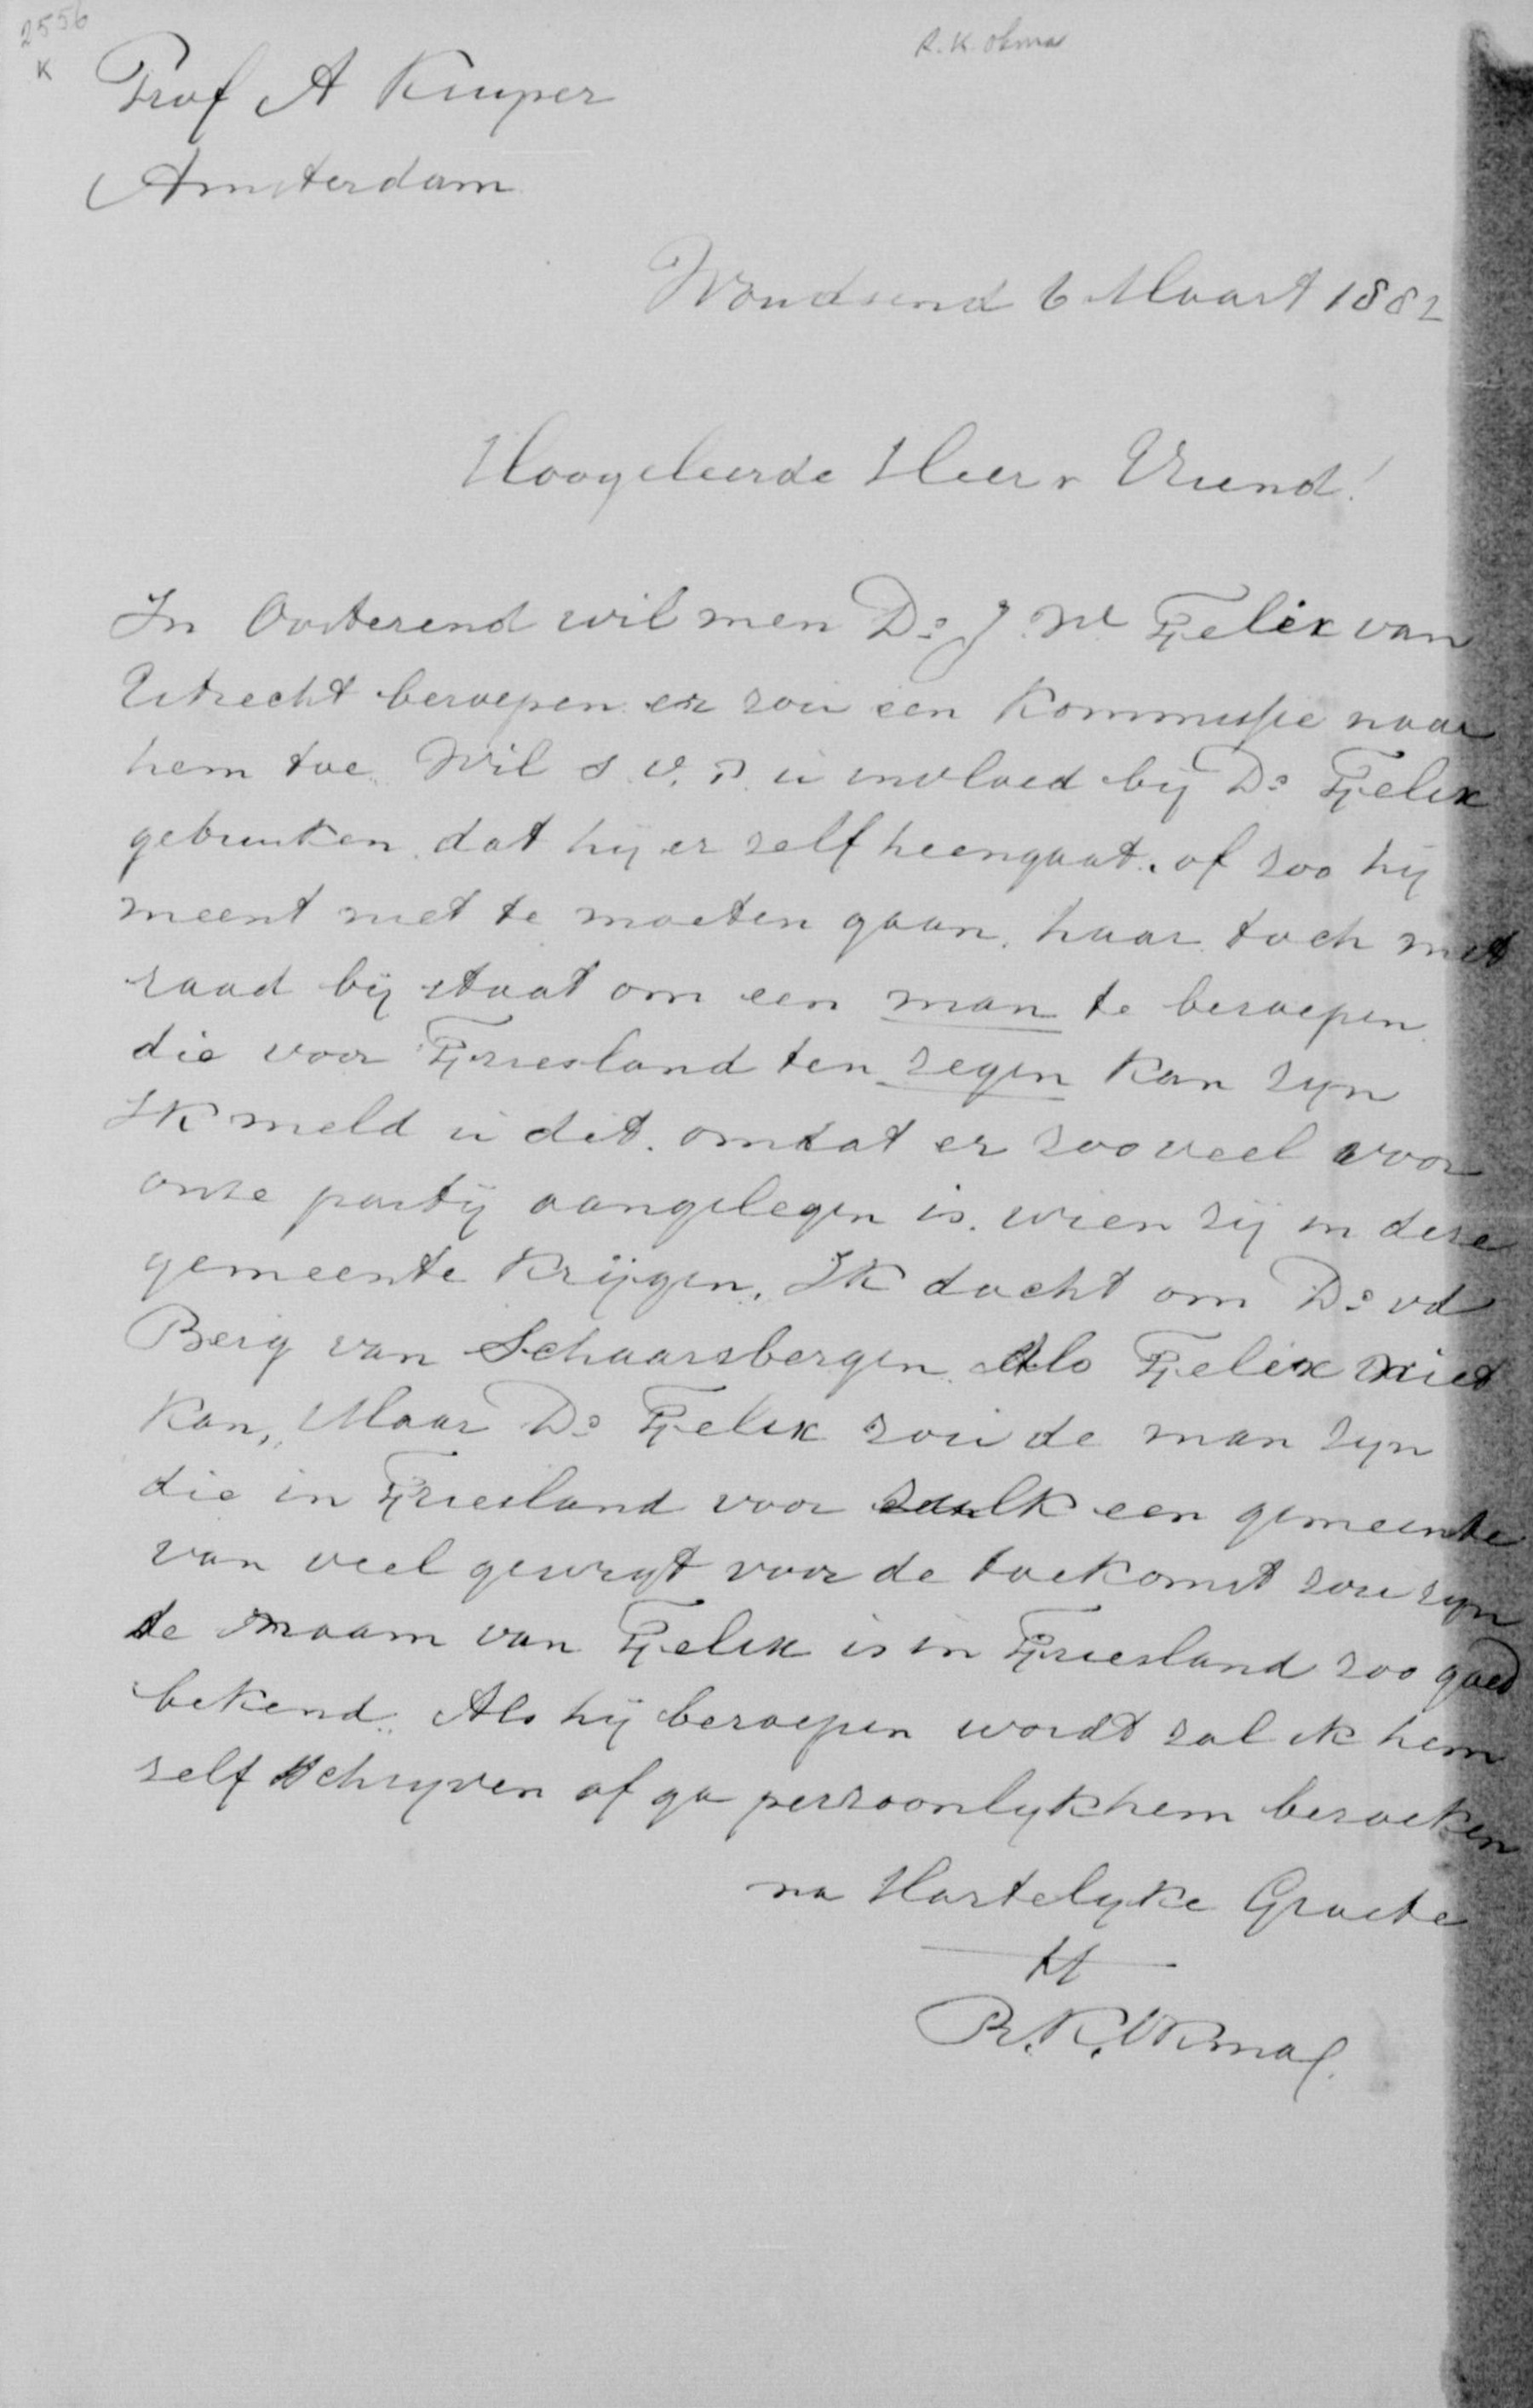 2556
K
R. K. Okma
Prof A Kuyper
Amsterdam
Woudsend 6 Maart 1882
Hoogeleerde Heer & Vriend!
In Oosterend wil men Ds J. W Felix van
Utrecht beroepen er zou een Kommissie naar
hem toe. Wil s. v. p. u invloed bij Ds Felix
gebruiken dat hij er zelf heengaat. of zoo hij
meent niet te moeten gaan, haar toch met
raad bij staat om een man te beroepen
die voor Friesland ten zegen kan zyn
Ik meld u dit. omdat er zooveel voor
onze partij aangelegen is. wien zij in deze
gemeente krijgen. Ik dacht om Ds vd
Berg van Schaarsbergen. Als Felix niet
kan, Maar Ds Felix zou de man zyn
die in Friesland voor zulk een gemeente
van veel gewigt voor de toekomst zou zyn
de naam van Felix is in Friesland zoo goed
bekend. Als hij beroepen wordt zal ik hem
zelf schryven of ga persoonlyk hem bezoeken
na Hartelyke Groete
tt
R. K. Okma